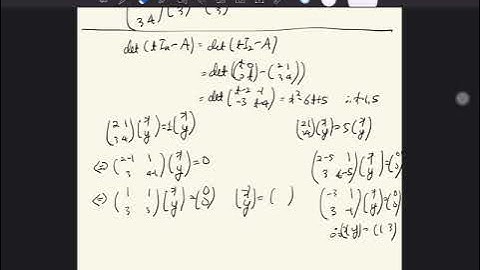 (3 4) (3) (3)
det(tI₂-A)=det(tI₂-A)
=det((t 0 / 0 t)-(2 1 / 3 4))
=det(t-2 -1 / -3 t-4)=t²-6t+5 ∴t=1,5
(2 1 / 3 4)(x / y)=1(x / y) (2 1 / 3 4)(x / y)=5(x / y)
⇔(2-1 1 / 3 4-1)(x / y)=0 (2-5 1 / 3 4-5)(x / y)=(0 / 0)
⇔(1 1 / 3 3)(x / y)=(0 / 0) (x / y)=( ) (-3 1 / 3 -1)(x / y)=(0 / 0)
∴(x y)=(1 3)